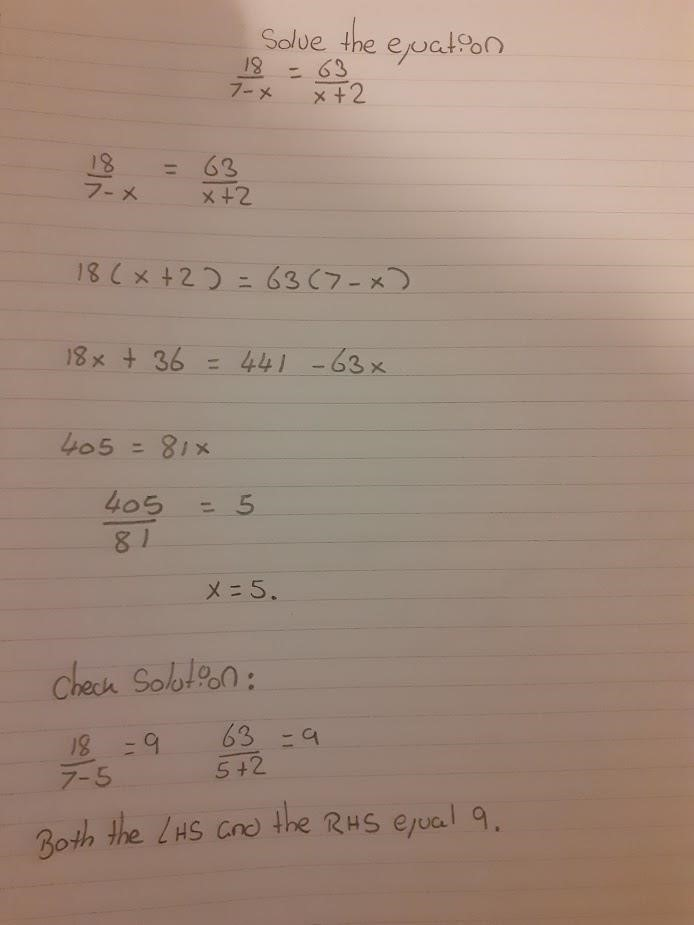 Solve the equation
18/7-x = 63/x+2
18/7-x = 63/x+2
18(x+2) = 63(7-x)
18x + 36 = 441 - 63x
405 = 81x
405/81 = 5
x = 5.
Check Solution:
18/7-5 = 9   63/5+2 = 9
Both the LHS and the RHS equal 9.